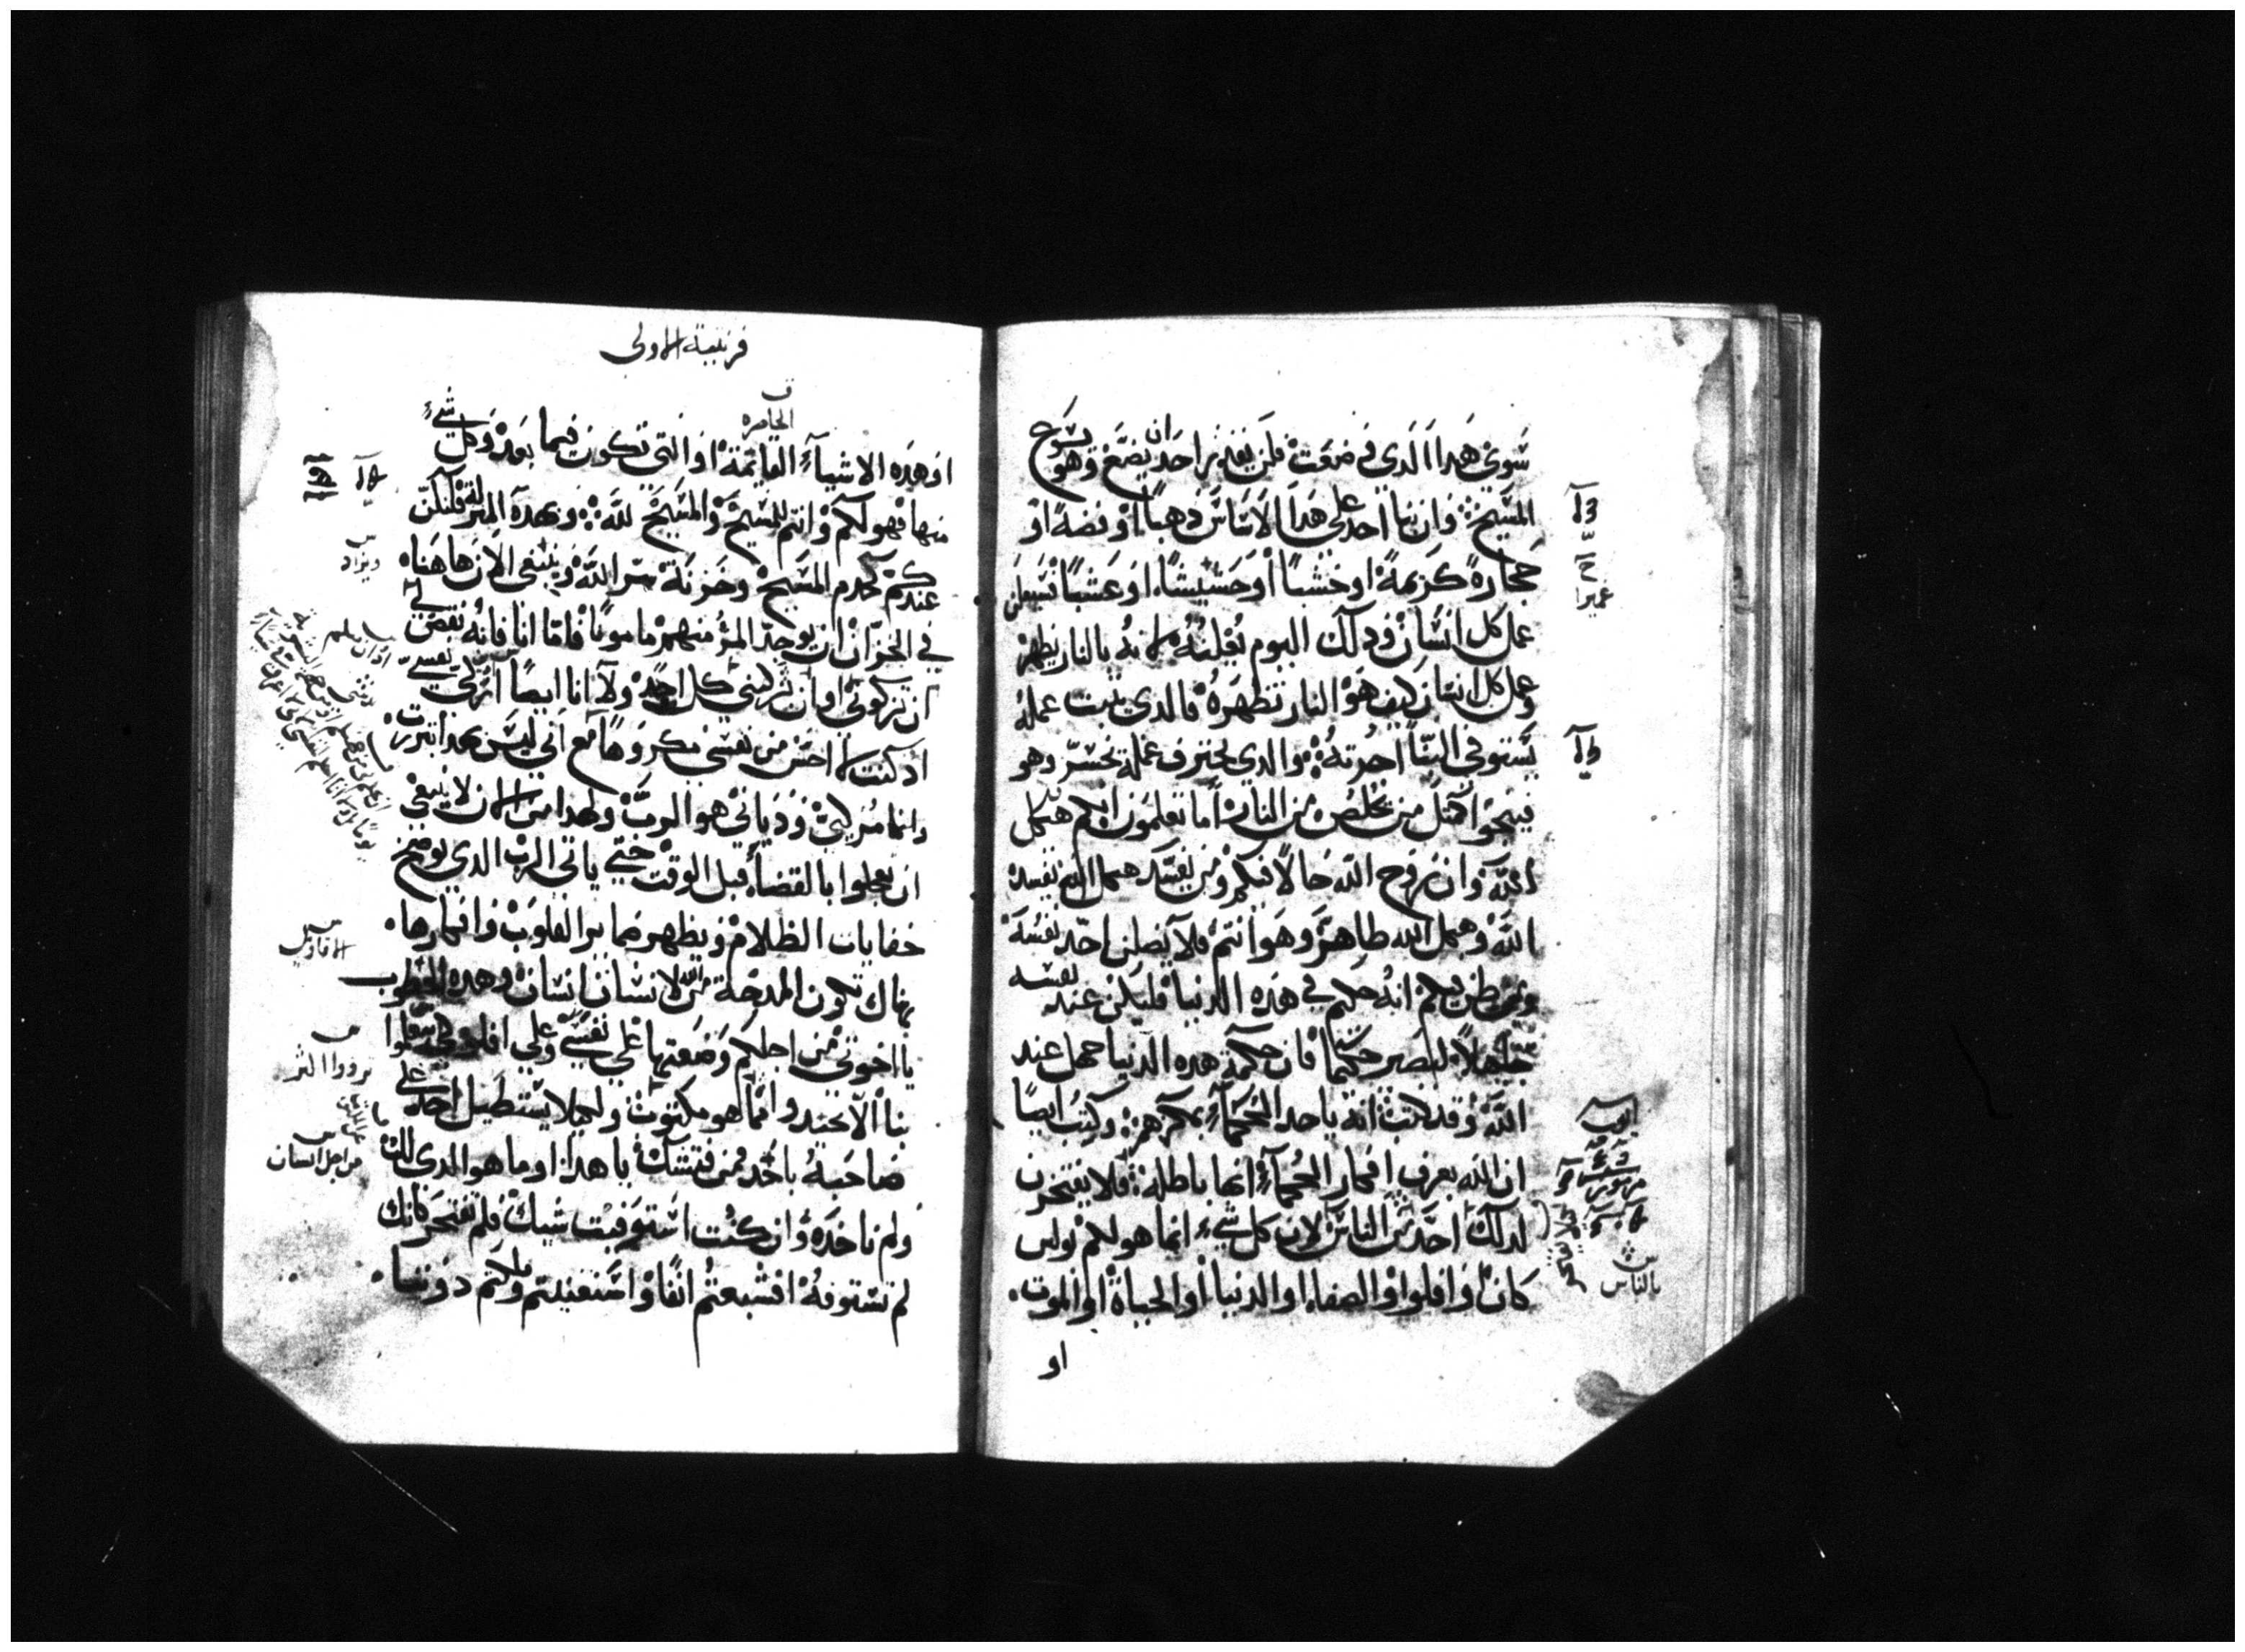 سوى هدا الدى قد وضعت فلن يقدر احد ان يضع وهو يسوع
المسيح وان بنا احد على هدا الاساس دهبا او فضه او
حجاره كريمة او خشبا او حشيشا او عشبا
عمل كل انسان ودلك اليوم يعلنه لانه بالنار يظهر
وعمل كل انسان كيف هو النار تظهره فالدى يثبت عمله
يستوفى البنا اجرته والدى يحترق عمله يخسر وهو
فينجوا كمثل من يخلص من النار اما تعلمون انكم هيكل
الله وان روح الله حالا فيكم ومن يفسد هيكل الله يفسده
الله وهيكل الله طاهر وهو انتم فلا يضلن احد نفسه
ومن ظن فيكم انه حكيم في هده الدنيا فليكن عند نفسه
جاهلا ليصير حكيما فان حكمة هده الدنيا جهل عند
الله وقد كتب انه ياخد الحكماء بمكرهم وكتب ايضا
ان الله يعرف افكار الحكماء انها باطله فلا يفتخرن
لدلك احد من الناس لان كل شيء انما هو لكم بولس
كان او افلوا او الصفا او الدنيا او الحياة او الموت
او
بالناس
قرنتية الاولى
الحاضره
او هده الاشياء القائمة او التي تكون فيما بعد وكل شيء
منها فهو لكم وانتم للمسيح والمسيح لله وبهده المنزلة فلنكن
عندكم كخدم المسيح وخزنة سر الله وينبغى الان هاهنا
في الخزان ان يوجد المرؤ منهم مامونا فاما انا فانه نقص لي
ان تزكوني او ان يزكيني كل احد ولا انا ايضا ازكي نفسي
اد كنت لا احس من نفسي مكروها مع اني ليس بهدا تبررت
وانما مزكيى وديانى هو الرب ولهدا من الان لا ينبغي
ان تعجلوا بالقضاء قبل الوقت حتى ياتى الرب الدي يوضح
خفايات الظلام ويظهر ضماير القلوب وافكارها
هناك تكون المدحة من الله لانسان انسان وهده الخطوب
يا اخوتى من اجلكم وضعتها على نفسي وعلي افلو
بنا الا وانما هو مكتوب ولا يستطيل احد على
صاحبه باحد فمن فتشك يا هدا او ما هو الدى لك
ولم تاخده وان كنت استوفيت شيك فلم تفتخر كانك
لم تستوفه افشبعتم انفا واستغنيتم وملكتم دوننا
ويراد
الاقاويل
من اجل انسان